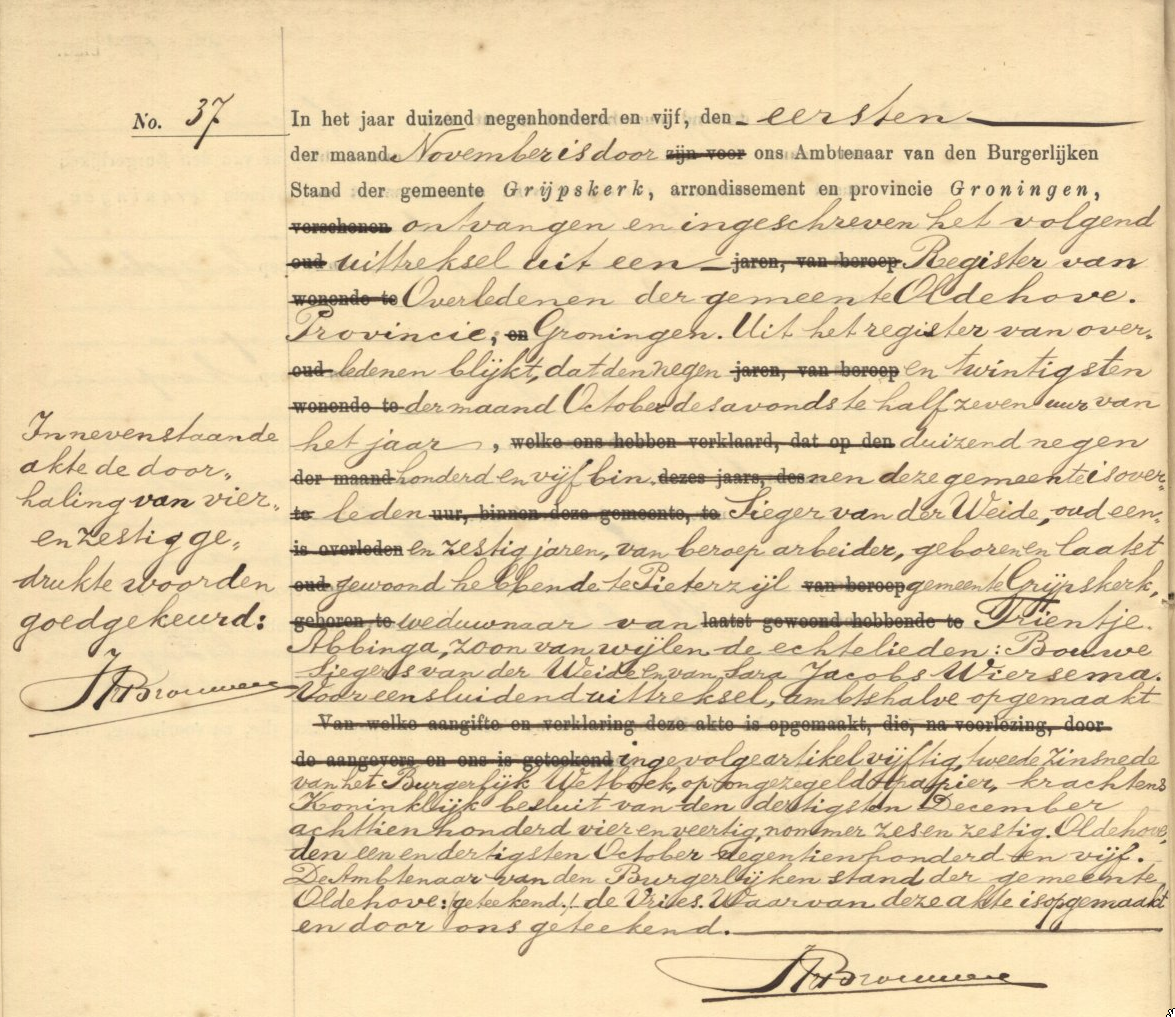 No. 37
In het jaar duizend negenhonderd en vijf, den eersten
der maand November is door zijn voor ons Ambtenaar van den Burgerlijken
Stand der gemeente Grijpskerk, arrondissement en provincie Groningen,
verschenen ontvangen en ingeschreven het volgend
oud uittreksel uit een jaren, van beroep Register van
wonende te Overledenen der gemeente Oldehove.
Provincie, en Groningen. Uit het register van over„
oud ledenen blijkt, dat den negen jaren, van beroep en twintigsten
wonende te der maand October des avonds te half zeven uur van
het jaar, welke ons hebben verklaard, dat op den duizend negen
der maand honderd en vijf bin dezes jaars, des nen deze gemeente is over„
te leden uur, binnen deze gemeente, te Sieger van der Weide, oud een„
is overleden en zestig jaren, van beroep arbeider, geboren en laatst
oud gewoond hebbende te Pieterzijl van beroep gemeente Grijpskerk,
geboren te weduwnaar van laatst gewoond hebbende te Trientje
Abbinga, zoon van wijlen de echtelieden: Bouwe
Siegers van der Weide en van Sara Jacobs Wiersema.
Voor eensluidend uittreksel, ambtshalve opgemaakt
Van welke aangifte en verklaring deze akte is opgemaakt, die, na voorlezing, door
de aangevers en ons is geteekend ingevolge artikel vijftig, tweede zinsnede
van het Burgerlijk Wetboek, op ongezegeld papier, krachtens
Koninklijk besluit van den dertigsten December
achttien honderd vier en veertig, nommer zes en zestig. Oldehove,
den een en dertigsten October negentienhonderd en vijf.
De Ambtenaar van den Burgerlijken stand der gemeente
Oldehove: (geteekend.) de Vries. Waarvan deze akte is opgemaakt
en door ons geteekend.
Brouwer
In nevenstaande
akte de door„
haling van vier„
en zestig ge„
drukte woorden
goedgekeurd:
Brouwer